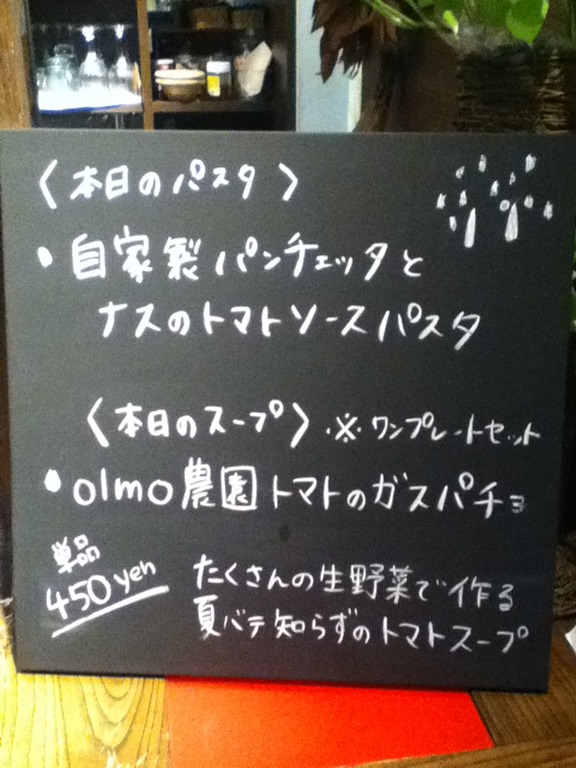 〈本日のパスタ〉
・自家製パンチェッタと
ナスのトマトソースパスタ
〈本日のスープ〉※ワンプレートセット
・olmo農園トマトのガスパチョ
単品
450yen
たくさんの生野菜で作る
夏バテ知らずのトマトスープ